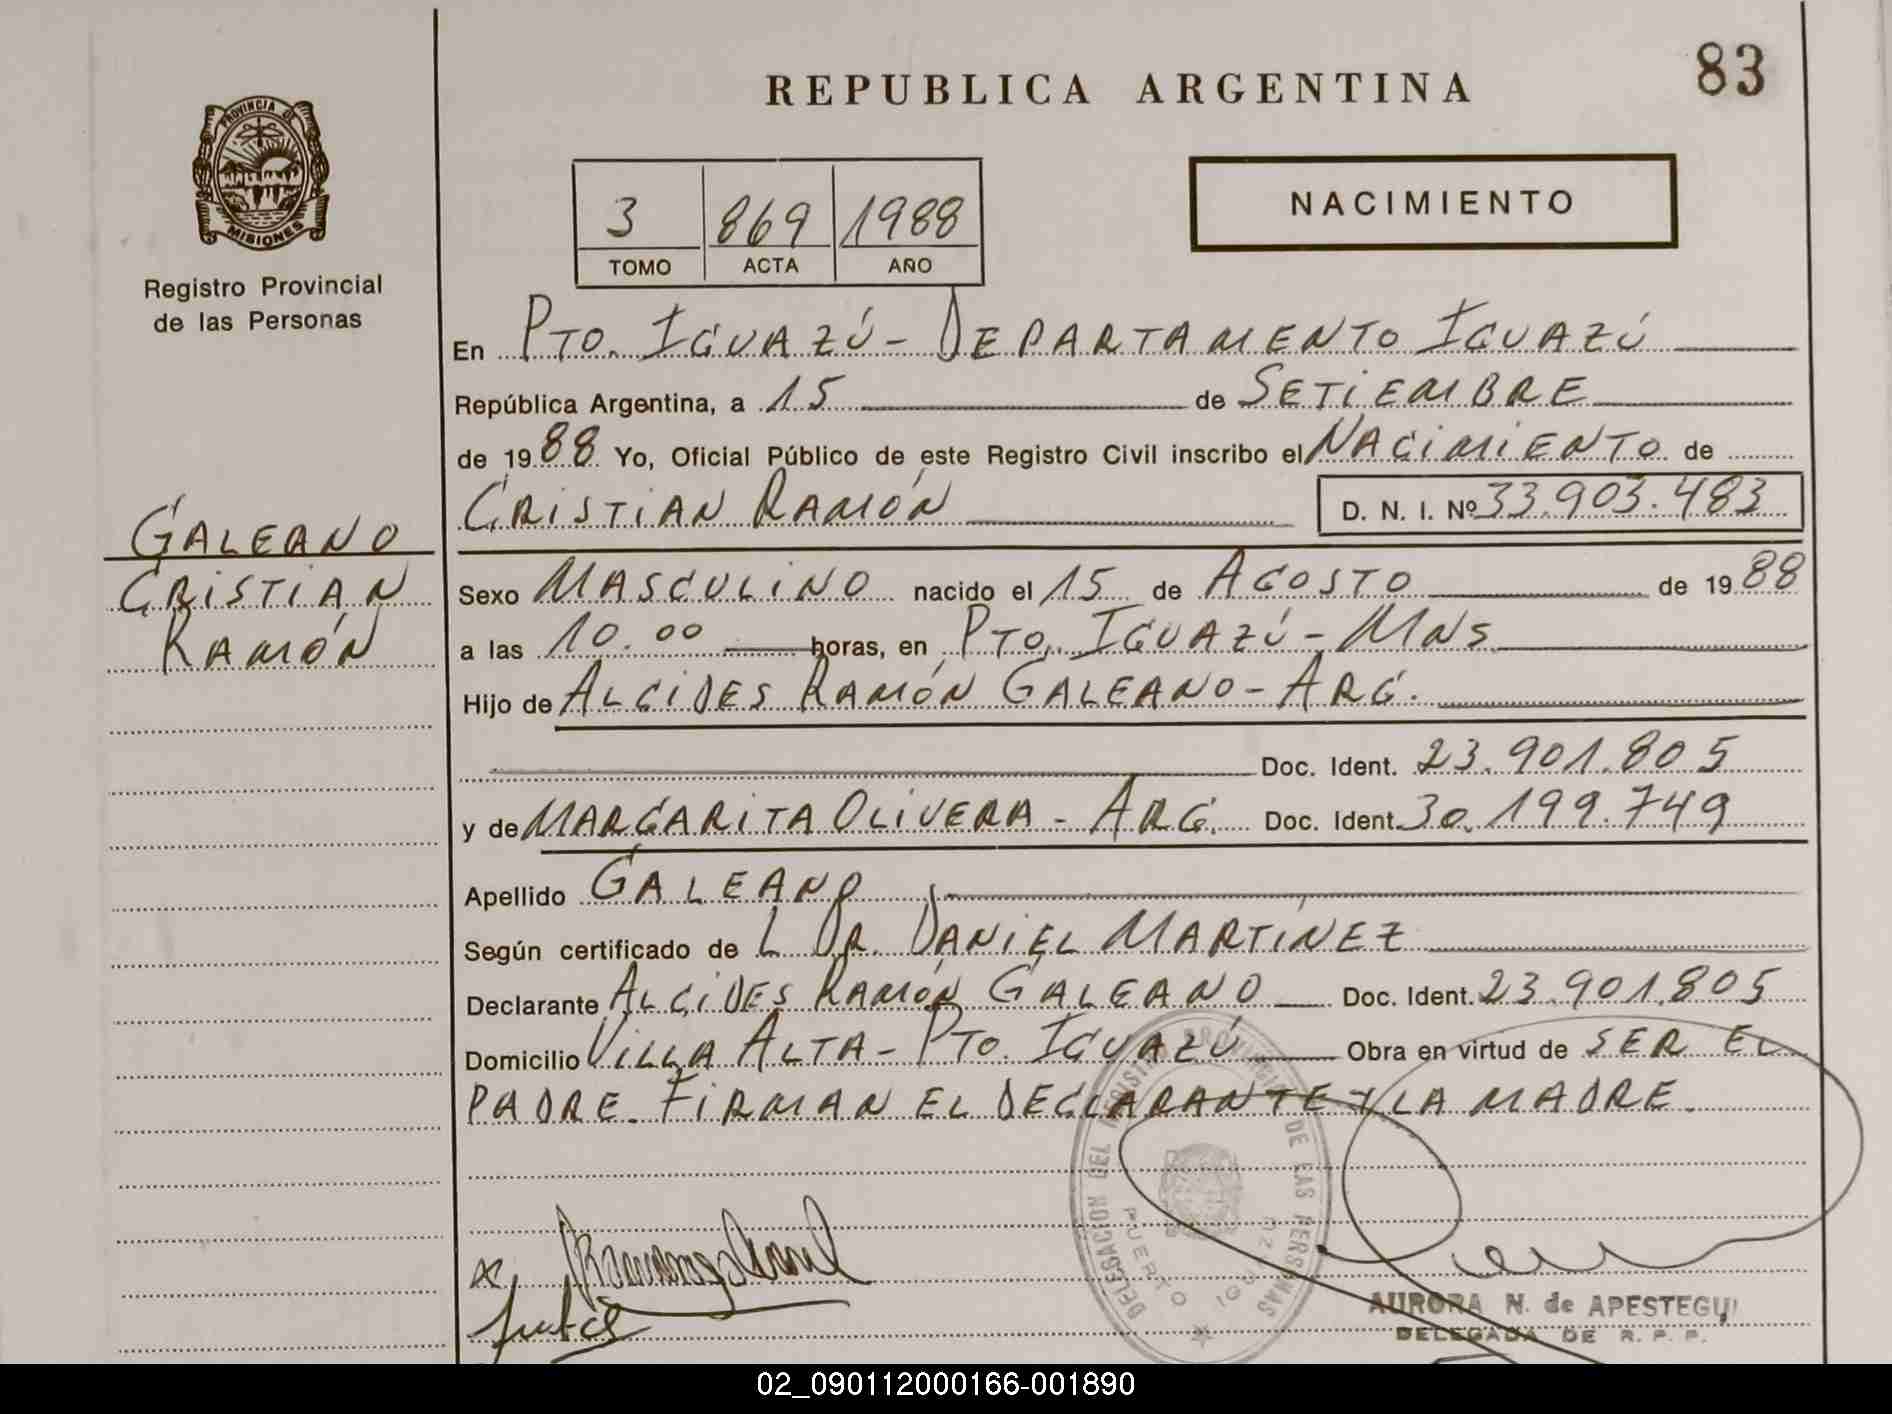 REPUBLICA ARGENTINA
83
PROVINCIA DE
MISIONES
Registro Provincial
de las Personas
3 869 1988
TOMO ACTA AÑO
NACIMIENTO
En PTO. IGUAZÚ - DEPARTAMENTO IGUAZÚ
República Argentina, a 15 de SETIEMBRE
de 1988 Yo, Oficial Público de este Registro Civil inscribo el NACIMIENTO de
CRISTIAN RAMÓN D. N. I. Nº 33.903.483
GALEANO
CRISTIAN
RAMÓN
Sexo MASCULINO nacido el 15 de AGOSTO de 1988
a las 10.00 horas, en PTO. IGUAZÚ - MNS.
Hijo de ALCIDES RAMÓN GALEANO - ARG.
Doc. Ident. 23.901.805
y de MARGARITA OLIVERA - ARG. Doc. Ident. 30.199.749
Apellido GALEANO
Según certificado de L DR. DANIEL MARTINEZ
Declarante ALCIDES RAMÓN GALEANO Doc. Ident. 23.901.805
Domicilio VILLA ALTA - PTO. IGUAZÚ Obra en virtud de SER EL
PADRE. FIRMAN EL DECLARANTE Y LA MADRE.
DELEGACION DEL REGISTRO PROVINCIAL DE LAS PERSONAS
PUERTO IGUAZU
AURORA N. de APESTEGUI
DELEGADA DE R. P. P.
02_090112000166-001890